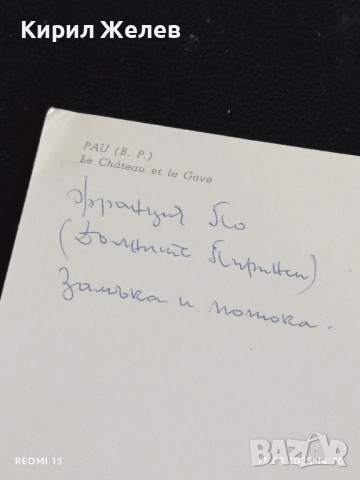 Кирил Желев
PAU (B. P.)
Le Château et le Gave
Франция По
(Долните Пиринеи)
Замъка и потока.
REDMI 13
bazar